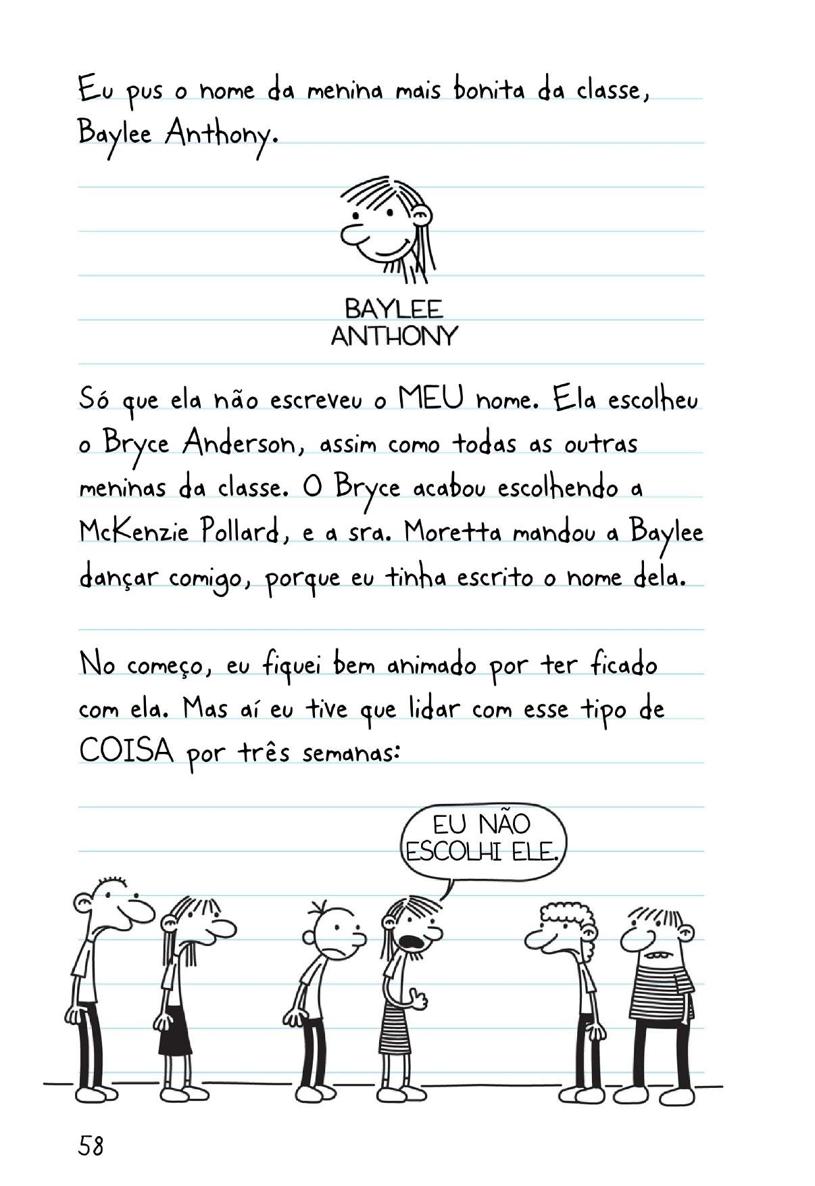 Eu pus o nome da menina mais bonita da classe,
Baylee Anthony.
BAYLEE
ANTHONY
Só que ela não escreveu o MEU nome. Ela escolheu
o Bryce Anderson, assim como todas as outras
meninas da classe. O Bryce acabou escolhendo a
McKenzie Pollard, e a sra. Moretta mandou a Baylee
dançar comigo, porque eu tinha escrito o nome dela.
No começo, eu fiquei bem animado por ter ficado
com ela. Mas aí eu tive que lidar com esse tipo de
COISA por três semanas:
EU NÃO
ESCOLHI ELE.
58